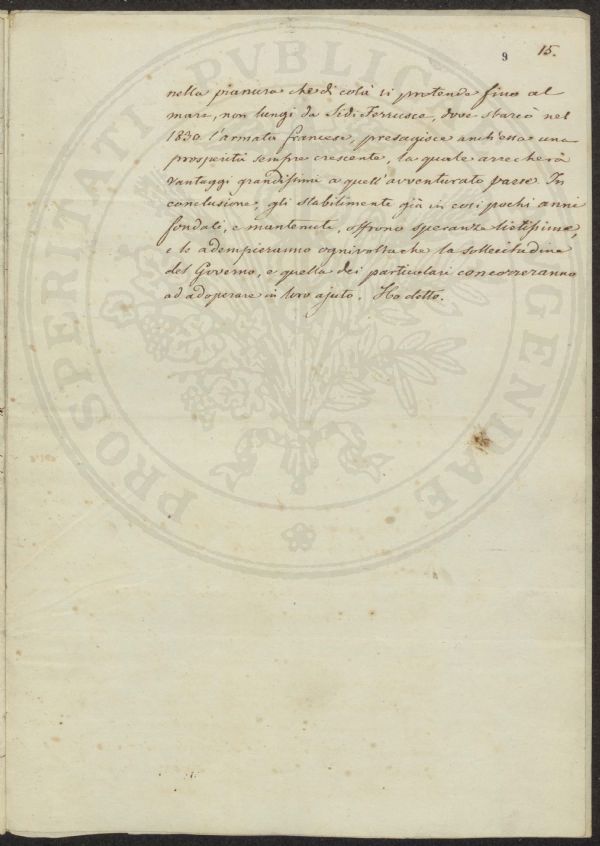 9 15.
nella pianura che di colà si protende fino al
mare, non lungi da Sidi Ferrusce, dove sbarcò nel
1830 l'armata francese, presagisce anch'essa una
prosperità sempre crescente, la quale arrecherà
vantaggi grandissimi a quell'avventurato paese. In
conclusione, gli stabilimenti già in così pochi anni
fondati, e mantenuti, offrono speranze lietissime,
e le adempieranno ognivolta che la sollecitudine
del Governo, e quella dei particolari concorreranno
ad adoperare in loro ajuto. Ho detto.
PROSPERITATI PVBLICAE AVGENDAE